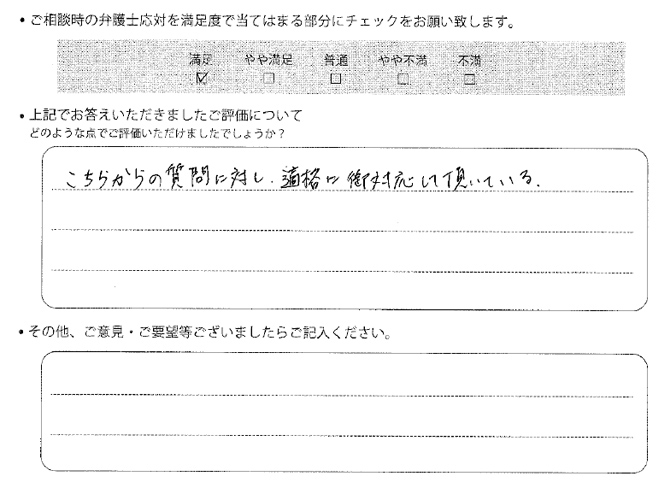 ・ご相談時の弁護士応対を満足度で当てはまる部分にチェックをお願い致します。
満足 やや満足 普通 やや不満 不満
☑ ☐ ☐ ☐ ☐
・上記でお答えいただきましたご評価について
どのような点でご評価いただけましたでしょうか？
こちらからの質問に対し、適格に御対応して頂いている。
・その他、ご意見・ご要望等ございましたらご記入ください。